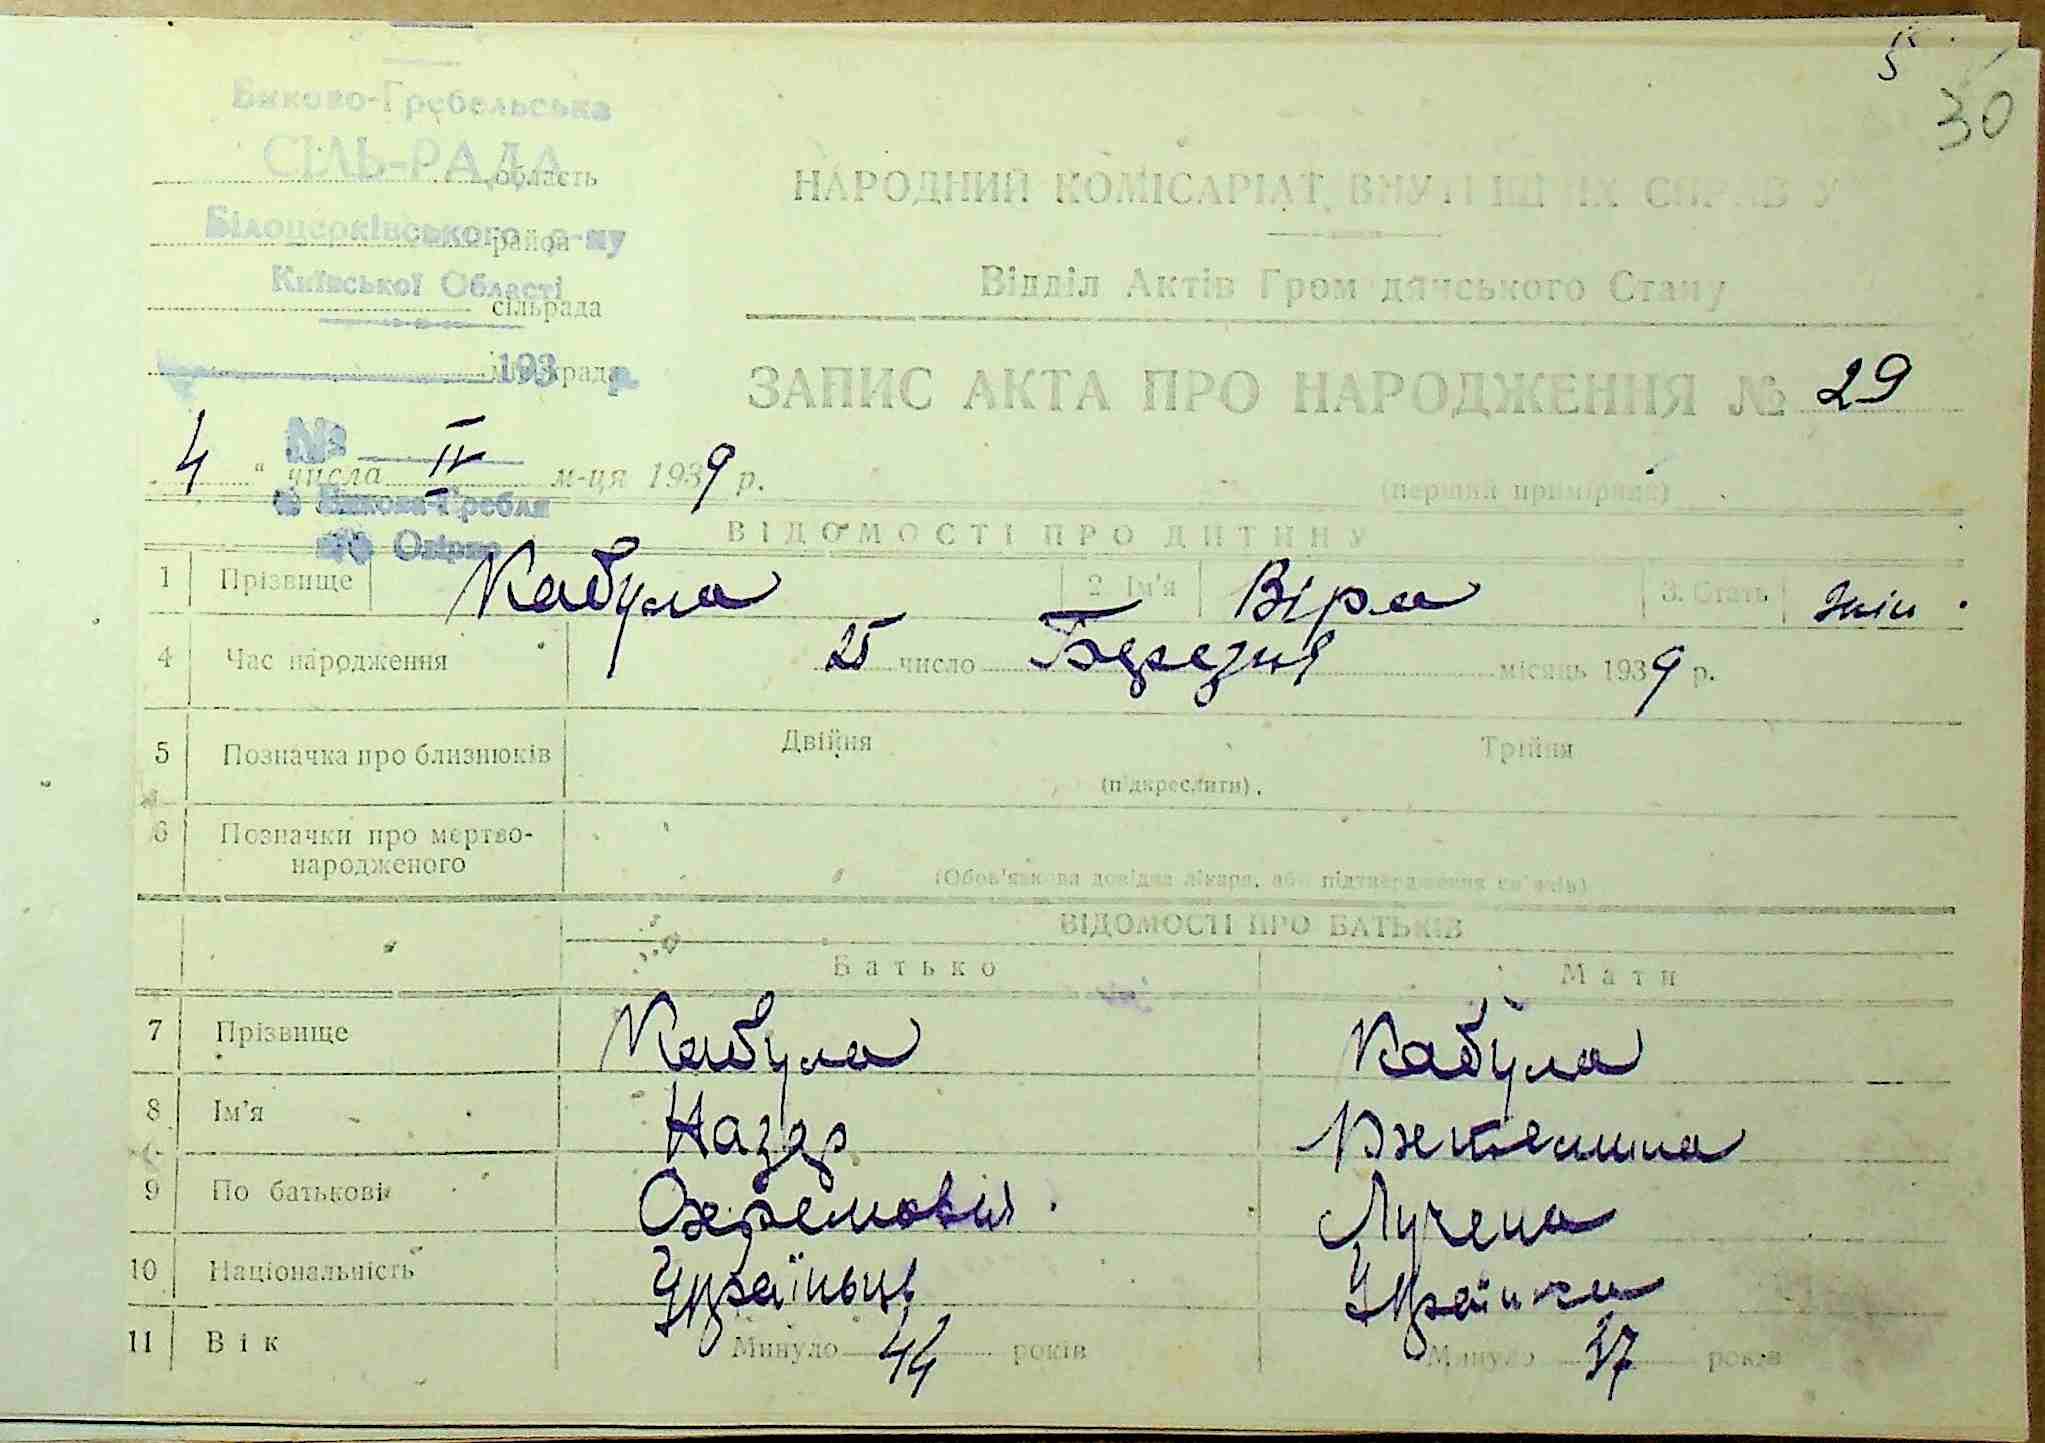 5
30
Биково-Гребельська
СІЛЬ-РАДА
область
НАРОДНИЙ КОМІСАРІАТ ВНУТРІШНІХ СПРАВ У
Білоцерківського р-ну
район
Відділ Актів Громадянського Стану
Київської Області
сільрада
193 р.
міськрада
ЗАПИС АКТА ПРО НАРОДЖЕННЯ № 29
№
4 " числа IV м-ця 1939 р.
(перший примірник)
с. Бикова-Гребля
ВІДОМОСТІ ПРО ДИТИНУ
1 Прізвище Кабула 2 Ім'я Віра 3. Стать жін.
4 Час народження 25 число Березня місяць 1939 р.
5 Позначка про близнюків Двійня Трійня
(підкреслити).
6 Позначки про мертво-
народженого
(Обов'язкова довідка лікаря, або підтвердження свідків)
ВІДОМОСТІ ПРО БАТЬКІВ
Батько Мати
7 Прізвище Кабула Кабула
8 Ім'я Назар
9 По батькові Охремович
10 Національність Українець Українка
11 Вік Минуло 44 років Минуло 37 років